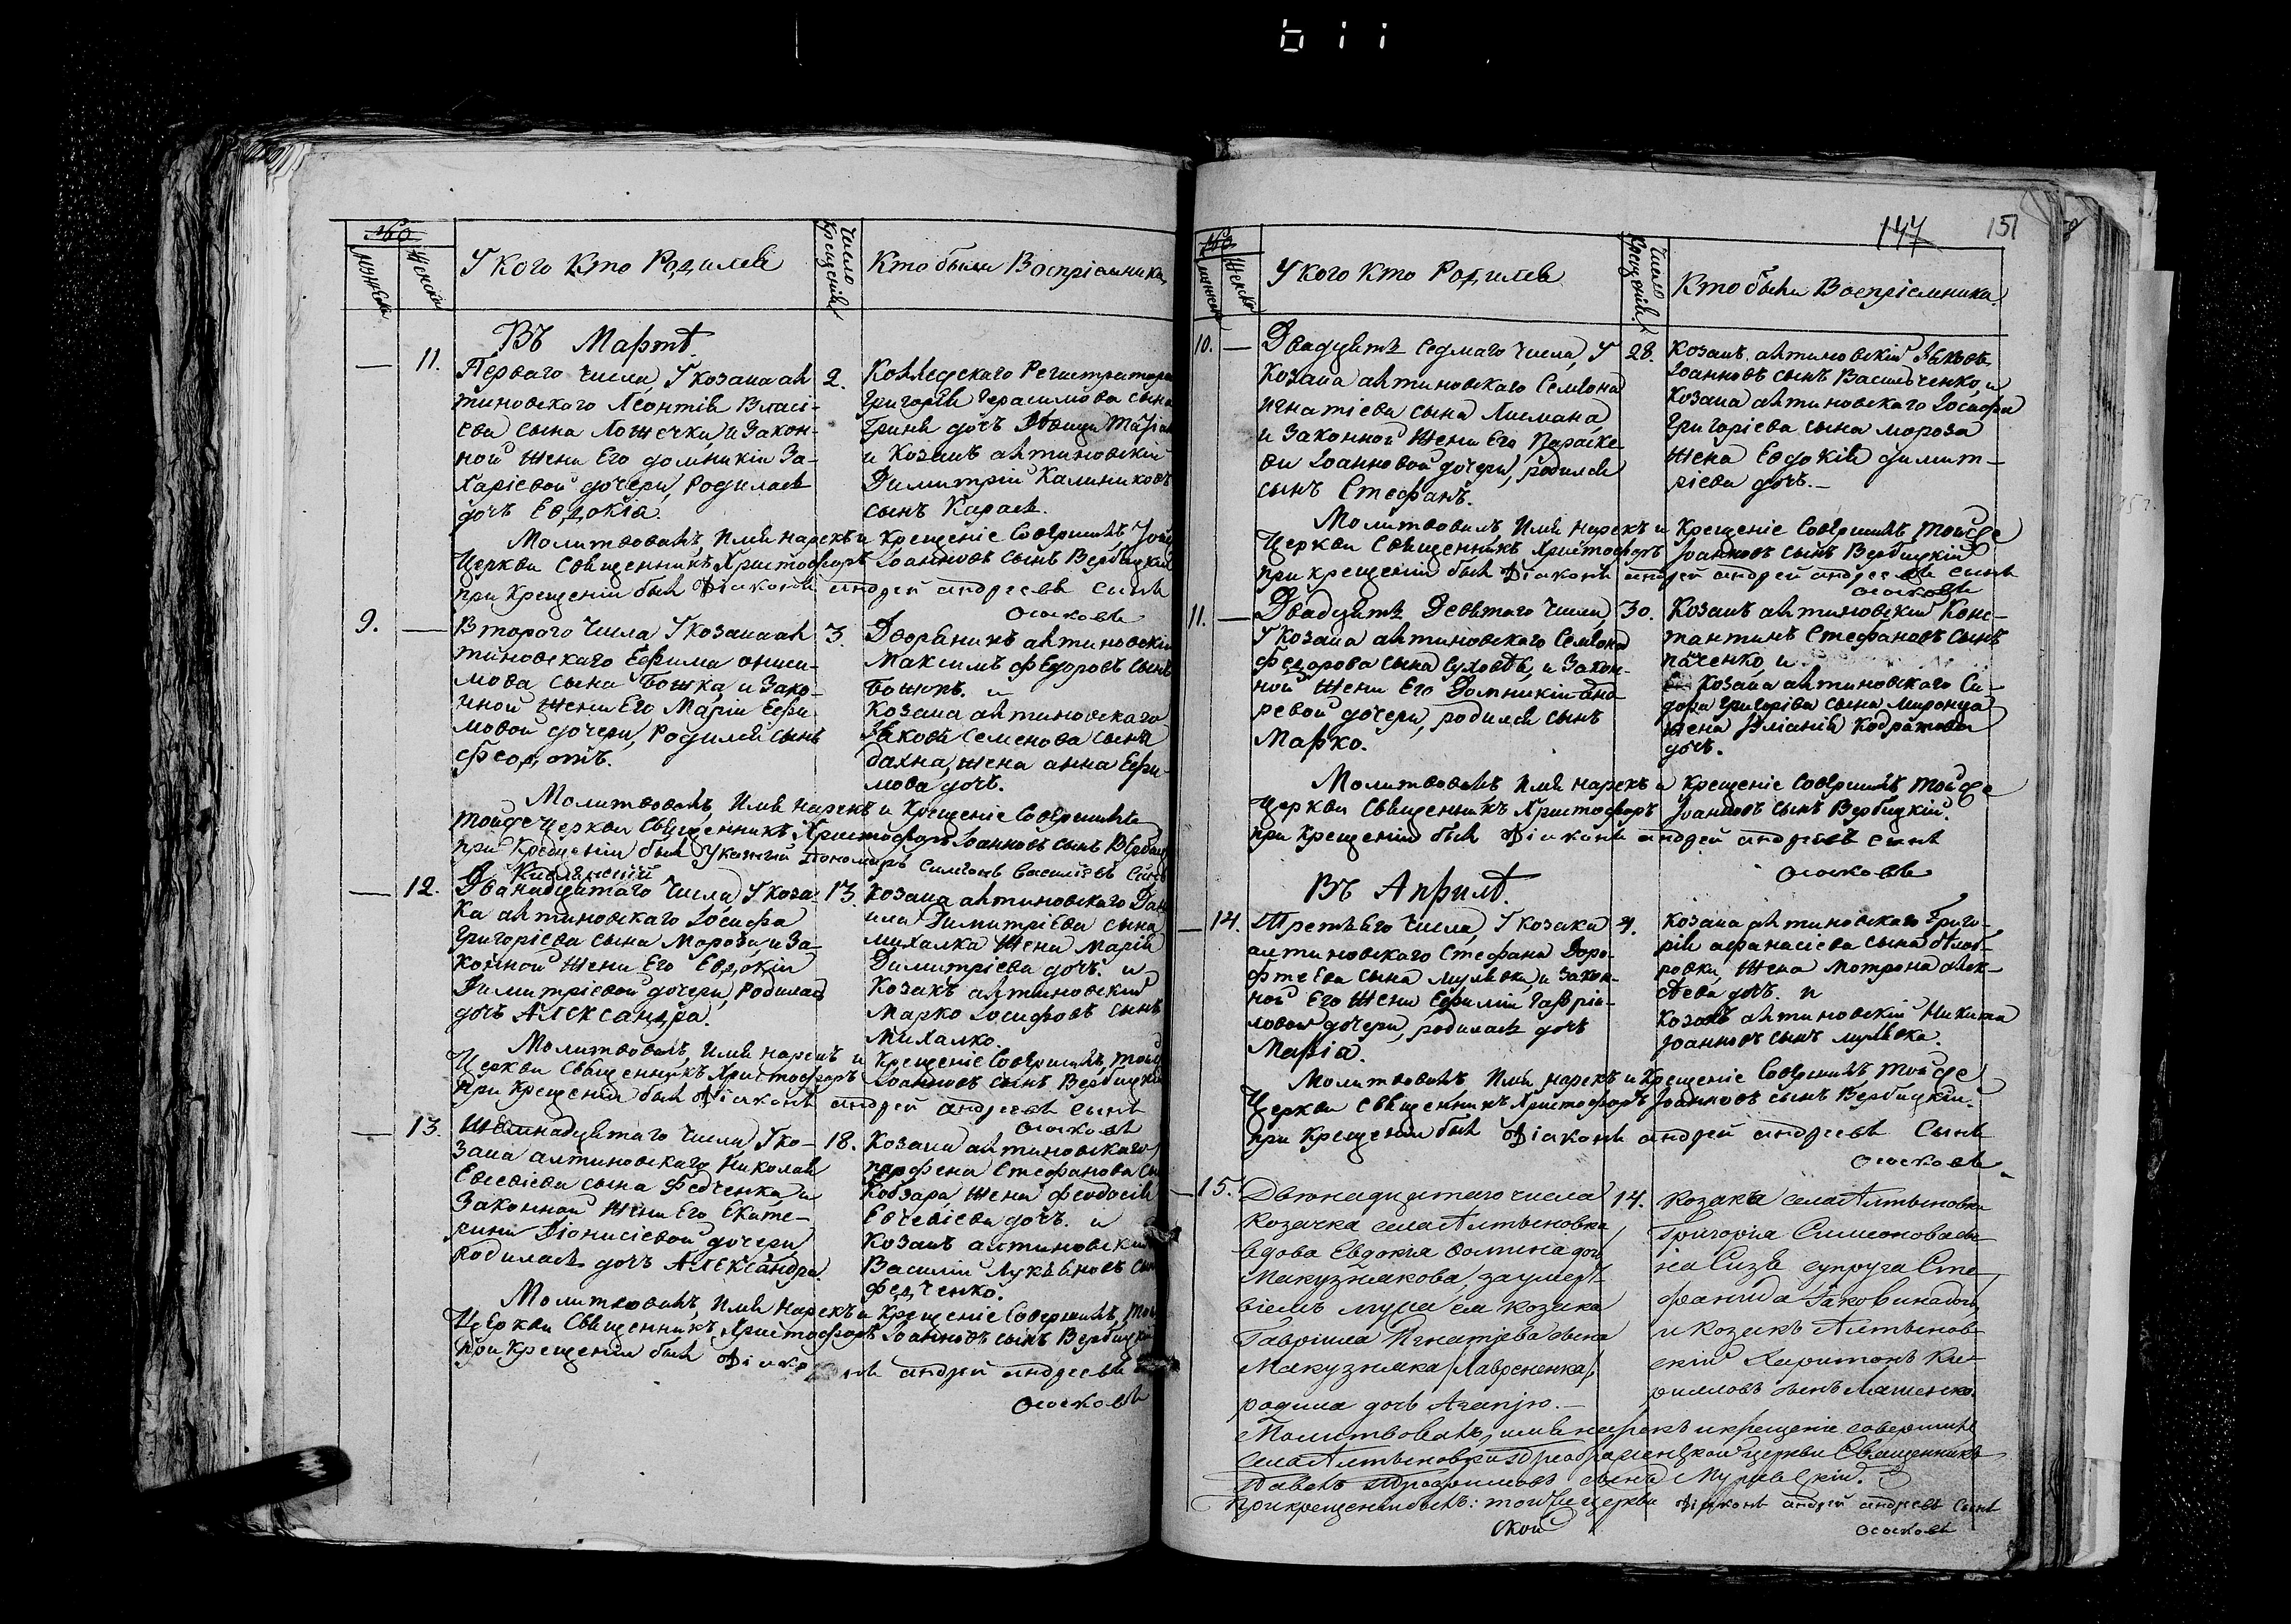 №
мужеска
женска
У кого Кто Родился
Число крещенія
Кто были Воспріемники
Въ Мартѣ.
11.
Перваго Числа, У козака ал
тиновскаго Леонтія Власі-
ева сына Ложечки, и Закон-
ной жены Его домникіи За-
харіевой дочери, Родилась
дочь Евдокія.
2.
Коллежскаго Регистратора
Григорія Герасимова сына
дочь Дѣвица
и Козакъ алтиновскій
Димитрій Калиниковъ
сынъ Карась.
Молитвовалъ, Имя нарекъ и Крещеніе Совершилъ той
Церкви Священникъ Христофоръ Іоанновъ сынъ Вербицкій
при Крещеніи былъ Діаконъ андрей андреевъ сынъ
9.
Втораго Числа У козака ал
тиновскаго Ефима ониси-
мова сына Божка, и Зако-
нной жены Его Маріи Ефи
мовой дочери, Родился сынъ
Феодотъ.
3.
Дворянинъ алтиновскій
Максимъ Федоровъ сынъ
Божокъ. и
Козака алтиновскаго
Іакова Семенова сына
дахна, жена анна Ефи-
мова дочь.
Молитвовалъ, Имя нарекъ и Крещеніе Совершилъ
тойже Церкви Священникъ Христофоръ Іоанновъ сынъ Вербиц
при Крещеніи былъ Указный Пономарь Симеонъ Василіевъ сынъ
12.
Дванадцятаго Числа, У коза-
ка алтиновскаго Іосифа
Григоріева сына Мороза, и За-
конной жены Его Евдокіи
Димитріевой дочери, Родилась
дочь Александра.
13.
Козака алтиновскаго Дан
іила Димитріева сына
михалка жена Марія
Димитріева дочь. и
Козакъ алтиновскій
Марко Іосифовъ сынъ
Михалко.
Молитвовалъ, Имя нарекъ и Крещеніе Совершилъ, той
Церкви Священникъ Христофоръ Іоанновъ сынъ Вербицкій
при Крещеніи былъ Діаконъ андрей андреевъ сынъ
13.
надцятаго Числа, У ко-
зака алтиновскаго Николая
Евсевіева сына Федченка, и
Законной жены Его Екате-
рины Діонисіевой дочери
Родилась дочь Александра.
18.
Козака алтиновскаго
парфена Стефанова сы
Кобзара, жена феодосія
дочь. и
Козакъ алтиновскій
Василій Лукьяновъ сын
Федченко.
Молитвовалъ, Имя Нарекъ и Крещеніе Совершилъ, той
Церкви Священникъ, Христофоръ Іоанновъ сынъ Вербицкій
при Крещеніи былъ Діаконъ андрей андреевъ
147
151
№
мужеска
женска
У кого Кто Родился
Число Крещенія
Кто были Воспріемники.
10.
Двадцять седмаго Числа, У
Козака алтиновскаго Семіона
игнатіева сына Лисмана,
и Законной жены Его Параске-
ви Іоанновой дочери, родился
сынъ Стефанъ.
28.
Козакъ алтиновскій Іаковъ
Іоанновъ сынъ Васильченко, и
Козака алтиновскаго Іосифа
Григоріева сына мороза
жена Евдокія димит-
ріева дочь.
Молитвовалъ, Имя нарекъ и Крещеніе Совершилъ тойже
Церкви Священникъ Христофоръ Іоанновъ сынъ Вербицкій
при крещеніи былъ Діаконъ андрей андрей андреевъ сынъ
11.
Двадцять Девятаго Числа,
У Козака алтиновскаго Семіона
федорова сына и Закон-
ной жены Его Домникіи анд
ревой дочери, родился сынъ
Марко.
30.
Козакъ алтиновскій Конс-
тантинъ Стефановъ сынъ
и
Козака алтиновскаго Си-
дора Григорієва сына миронца
жена Юліанія Кодратова
дочь.
Молитвовалъ, Имя нарекъ и Крещеніе Совершилъ тойже
Церкви Священникъ Христофоръ Іоанновъ сынъ Вербицкій.
при Крещеніи былъ Діаконъ андрей андреевъ сынъ
Въ Априлѣ.
14.
Третьяго Числа, У Козака
алтиновскаго Стефана Доро-
фтеева сына мулявки, и Закон-
ной Его жены Ефиміи Гавріи-
ловой дочери, родилась дочь
Марія.
4.
Козака алтиновскаго Григо-
рія афанасіева сына
жена Мотрона алек-
сѣева дочь. и
Козакъ алтиновскій Никита
Іоанновъ сынъ мулявка.
Молитвовалъ Имя нарекъ и Крещеніе Совершилъ тойже
Церкви Священникъ Христофоръ Іоанновъ сынъ Вербицкій.
при Крещеніи былъ Діаконъ андрей андреевъ Сынъ
15.
Двѣнадцатаго числа
Козачка села Алтыновки
вдова Евдокія Фомина дочь
Макузнакова, за умерт-
віемъ мужа ея козака
Гавріила Игнатіева сына
Макузнака
родила дочь Агапію.
14.
Козака села Алтыновки
Григорія Симеонова сы
на супруга Сте-
фанида Іаковина дочь
и козакъ Алтынов-
скій Харитонъ Ки-
рилловъ сынъ Ляшенко.
Молитвовалъ, имя нарекъ и крещеніе совершилъ
села Алтыновки Преображенской церкви Священникъ
Павелъ Трофимовъ сынъ
При крещеніи былъ: той же церкви Діаконъ андрей андреевъ сынъ